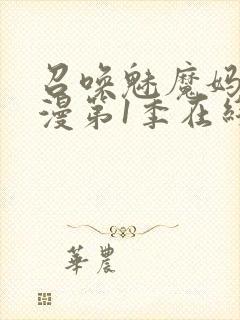 召喚魅魔妈
漫第1季在终
華農